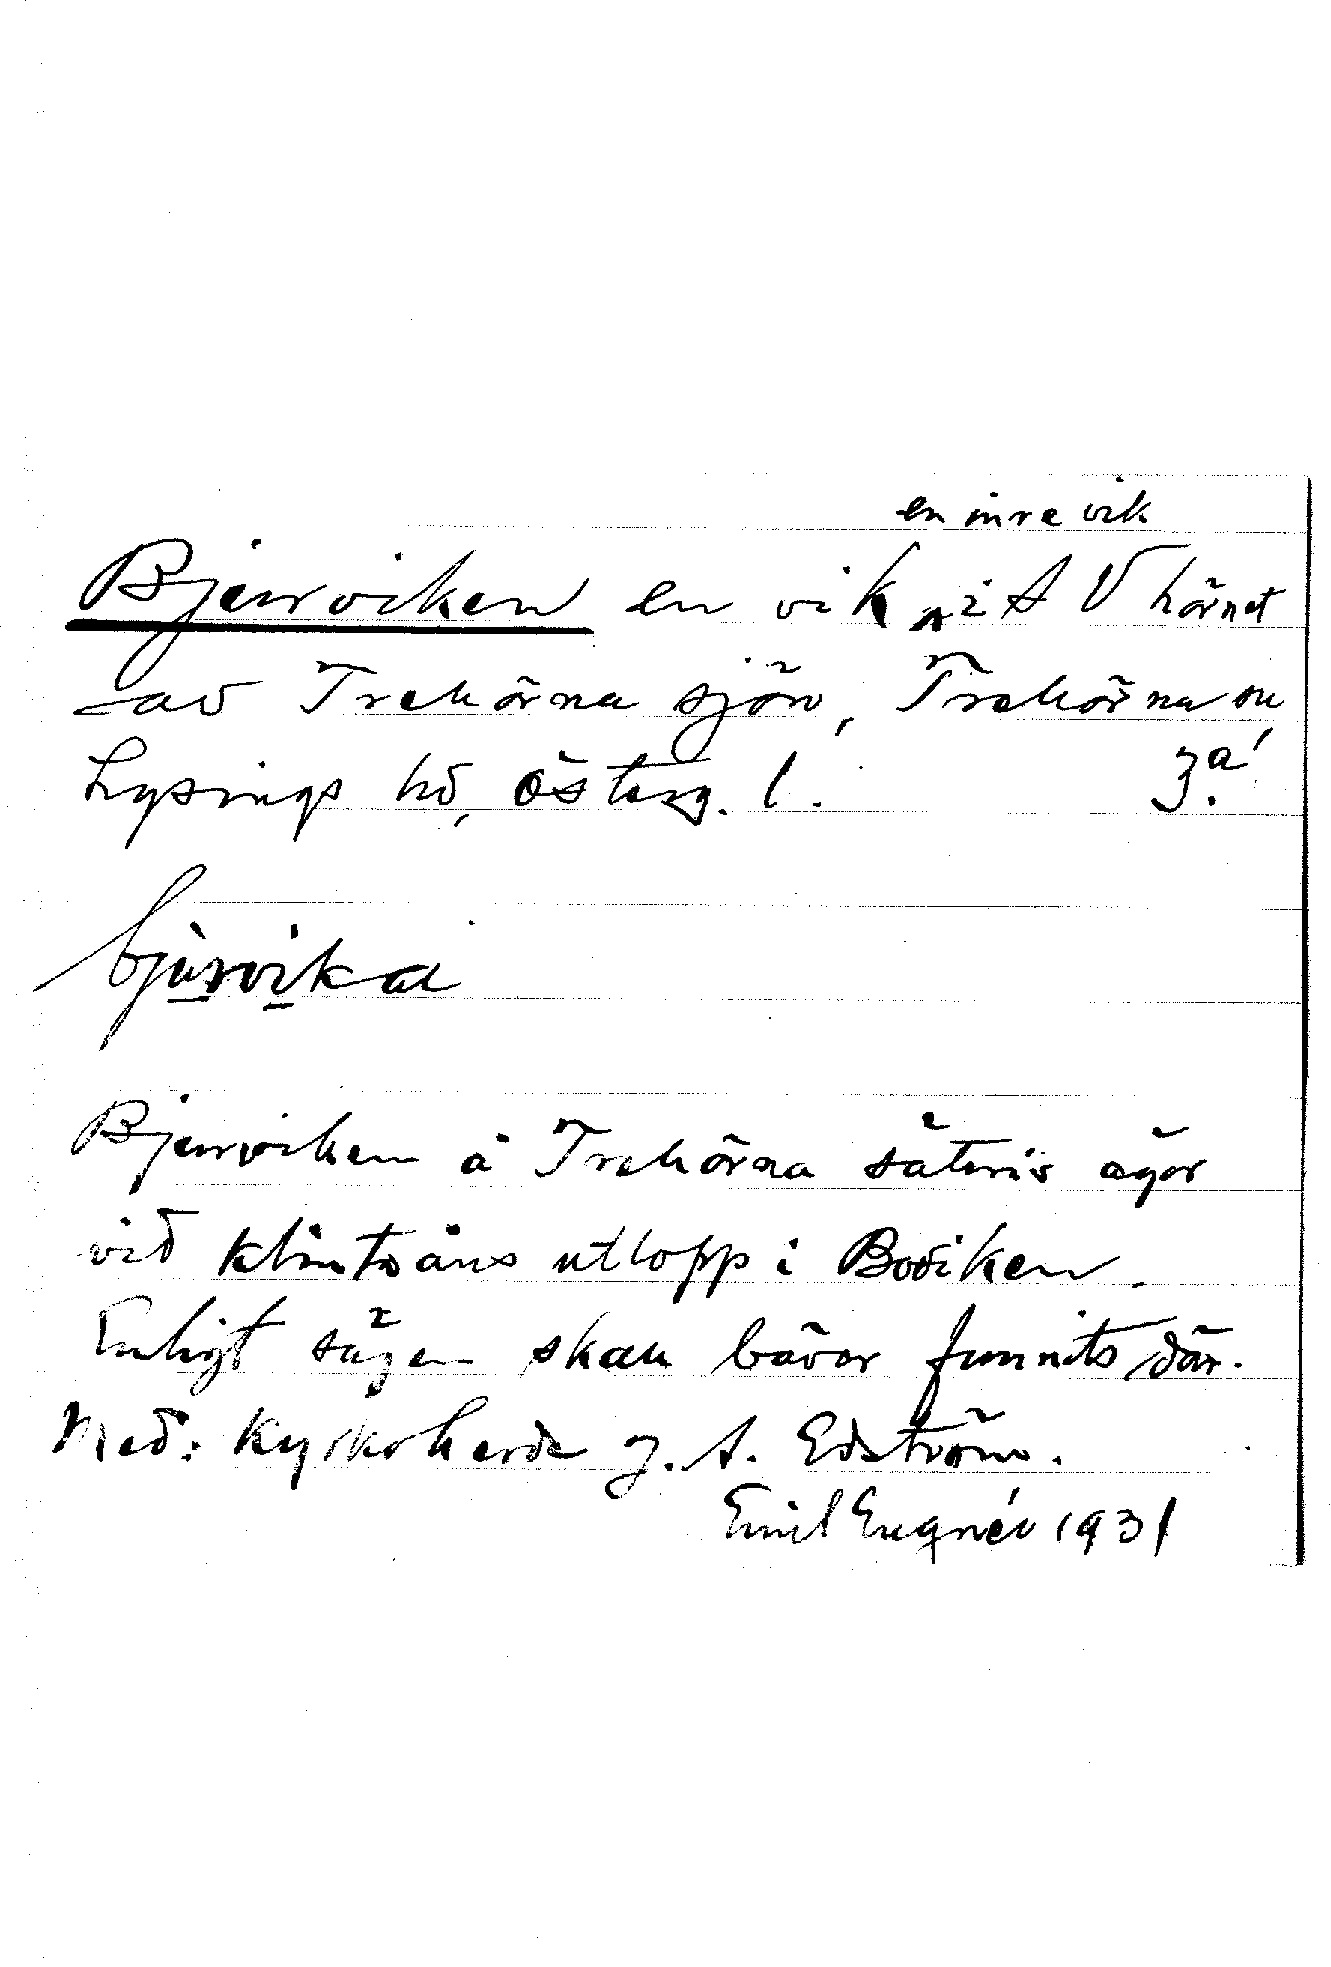 en inre vik
Bjerviken en vik i S V hörnet
av Trehörna sjön, Trehörna sn
Lysings hd, Österg. l. 3.a!
bjùrvika
Bjerviken å Trehörna säteris ägor
vid Klintaåns utlopp i Boviken.
Enligt sägen skall bävor funnits där.
Med: Kyrkoherde J. A. Edström.
Emil Engnér 1931